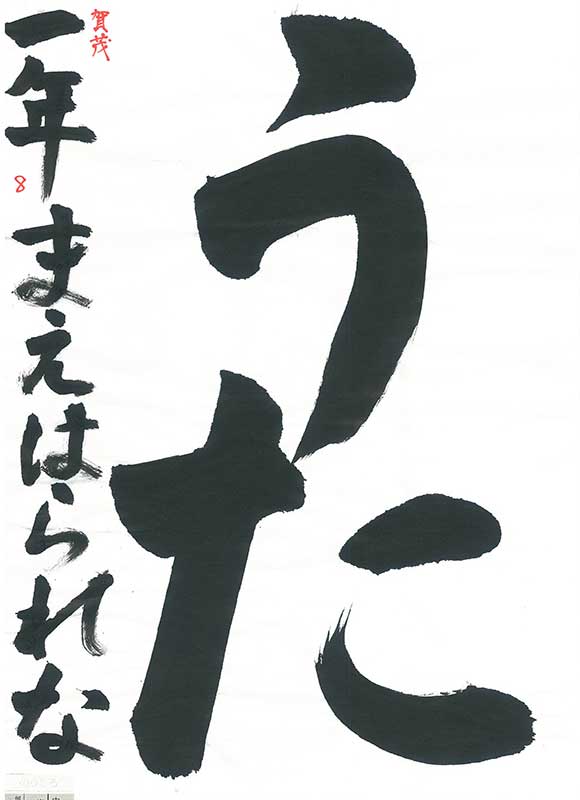 うた
賀茂
一年 まえはられな
8